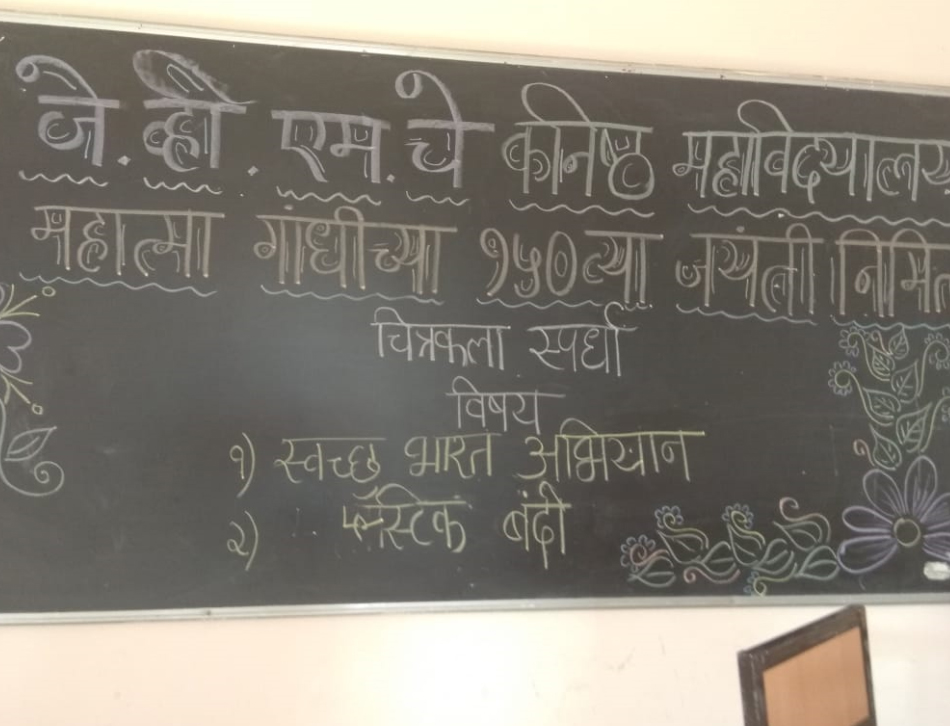 जे. व्ही. एम. चे कनिष्ठ महाविदयालय
महात्मा गांधीच्या १५० व्या जयंती निमित्त
चित्रकला स्पर्धा
विषय
१) स्वच्छ भारत अभियान
२) प्लॅस्टिक बंदी